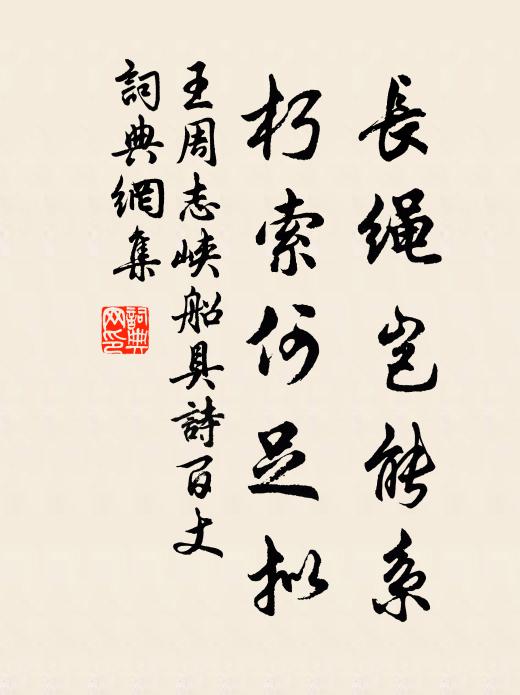 長绳岂能系
朽索何足拟
王周志峡船具詩百丈
詞典網集
詞典网印